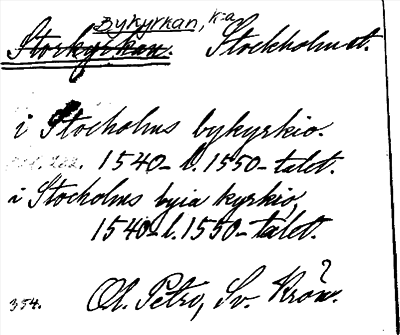 Bykyrkan, k:a
Storkyrkan. Stockholm st.
i Stocholms bykyrkio.
1540- l. 1550-talet.
i Stocholms byia kyrkio,
1540- l. 1550-talet.
?
Ol. Petri, Sv. Krön.
354.